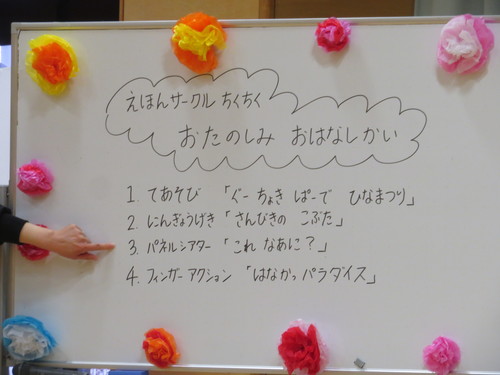 えほんサークル ちくちく
おたのしみ おはなしかい
1. てあそび 「ぐー ちょき ぱーで ひなまつり」
2. にんぎょうげき 「さんびきの こぶた」
3. パネルシアター 「これ なあに?」
4. フィンガーアクション 「はなかっパラダイス」